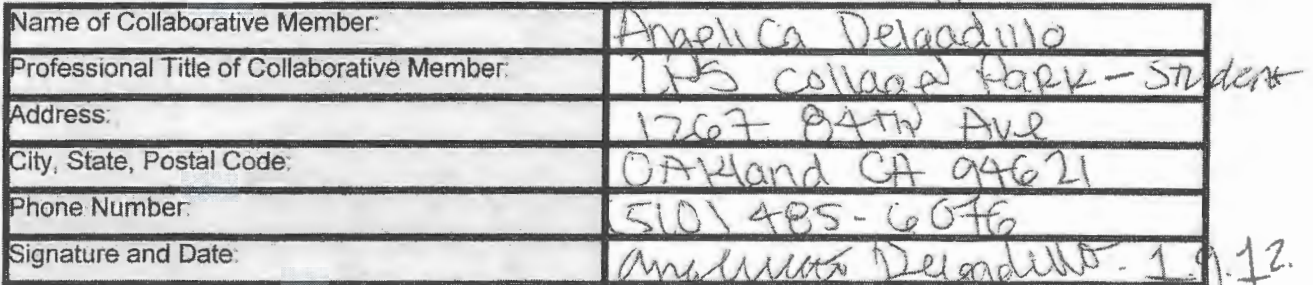 Name of Collaborative Member: Angelica Delgadillo
Professional Title of Collaborative Member: LPS College Park - Student
Address: 1267 84TH Ave
City, State, Postal Code: OAKland CA 94621
Phone Number: (510) 485-6076
Signature and Date: Angelica Delgadillo - 1.9.12.